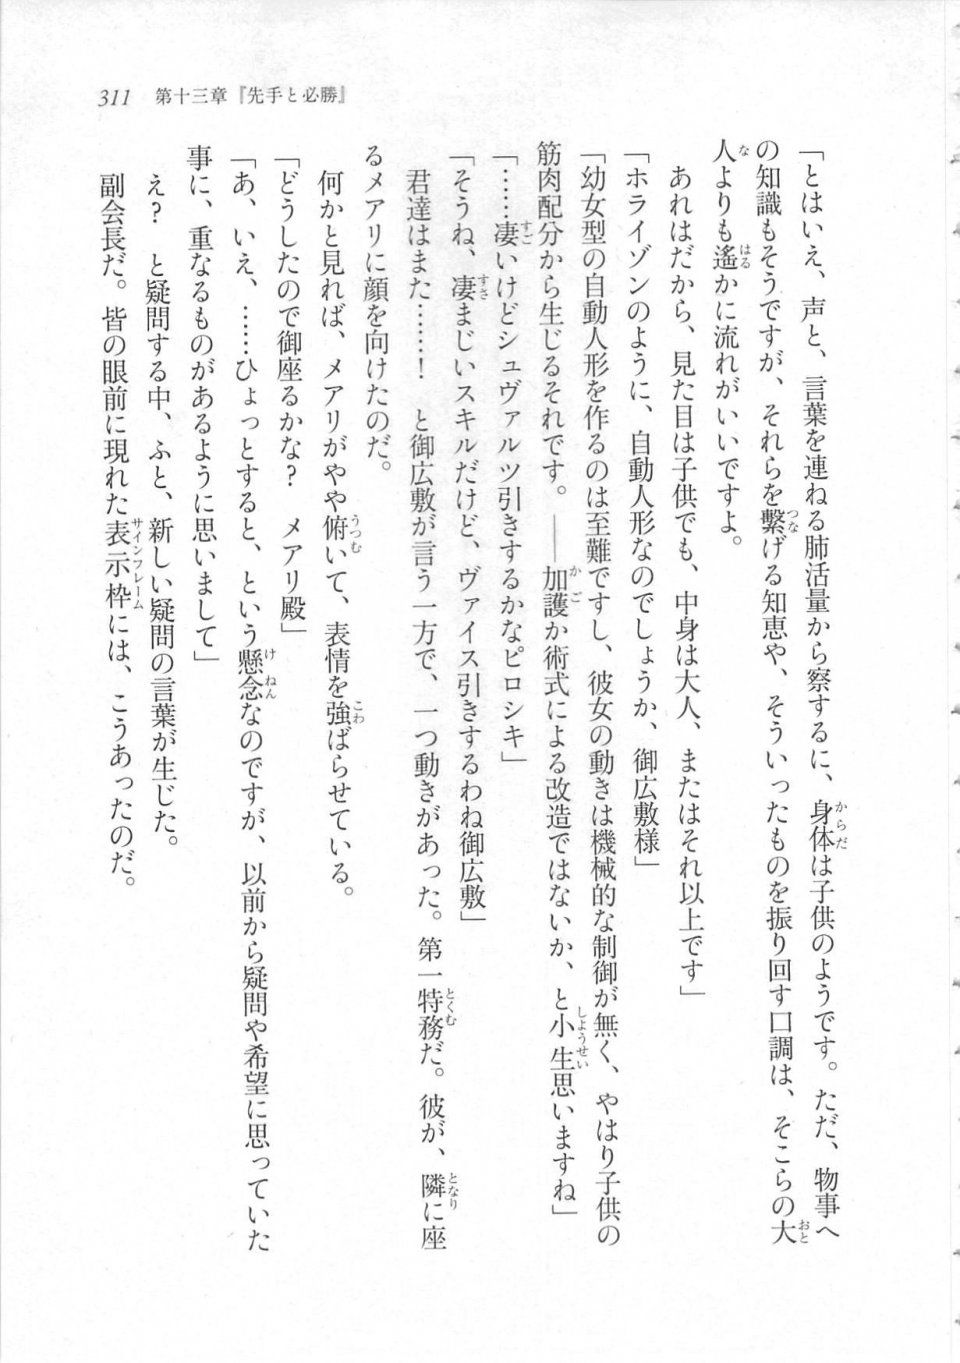 311 第十三章『先手と必勝』
「とはいえ、声と、言葉を連ねる肺活量から察するに、身体は子供のようです。ただ、物事へ
の知識もそうですが、それらを繫げる知恵や、そういったものを振り回す口調は、そこらの大
人よりも遙かに流れがいいですよ。
あれはだから、見た目は子供でも、中身は大人、またはそれ以上です」
「ホライゾンのように、自動人形なのでしょうか、御広敷様」
「幼女型の自動人形を作るのは至難ですし、彼女の動きは機械的な制御が無く、やはり子供の
筋肉配分から生じるそれです。――加護か術式による改造ではないか、と小生思いますね」
「……凄いけどシュヴァルツ引きするかなピロシキ」
「そうね、凄まじいスキルだけど、ヴァイス引きするわね御広敷」
君達はまた……！　と御広敷が言う一方で、一つ動きがあった。第一特務だ。彼が、隣に座
るメアリに顔を向けたのだ。
何かと見れば、メアリがやや俯いて、表情を強ばらせている。
「どうしたので御座るかな？　メアリ殿」
「あ、いえ、……ひょっとすると、という懸念なのですが、以前から疑問や希望に思っていた
事に、重なるものがあるように思いまして」
え？　と疑問する中、ふと、新しい疑問の言葉が生じた。
副会長だ。皆の眼前に現れた表示枠には、こうあったのだ。